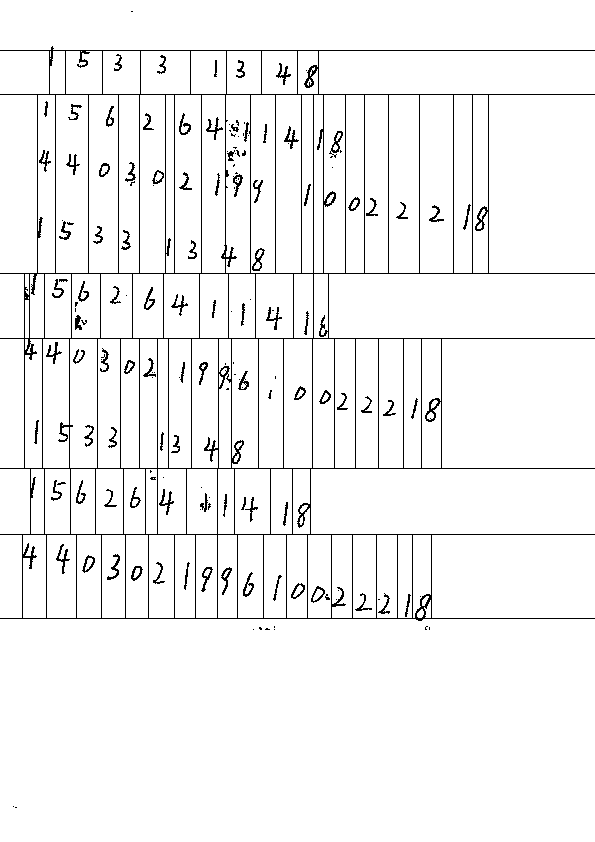 15331348
15626411418
44030219910022218
15331348
15626411416
440302199610022218
15331348
1562641418
440302199610022218